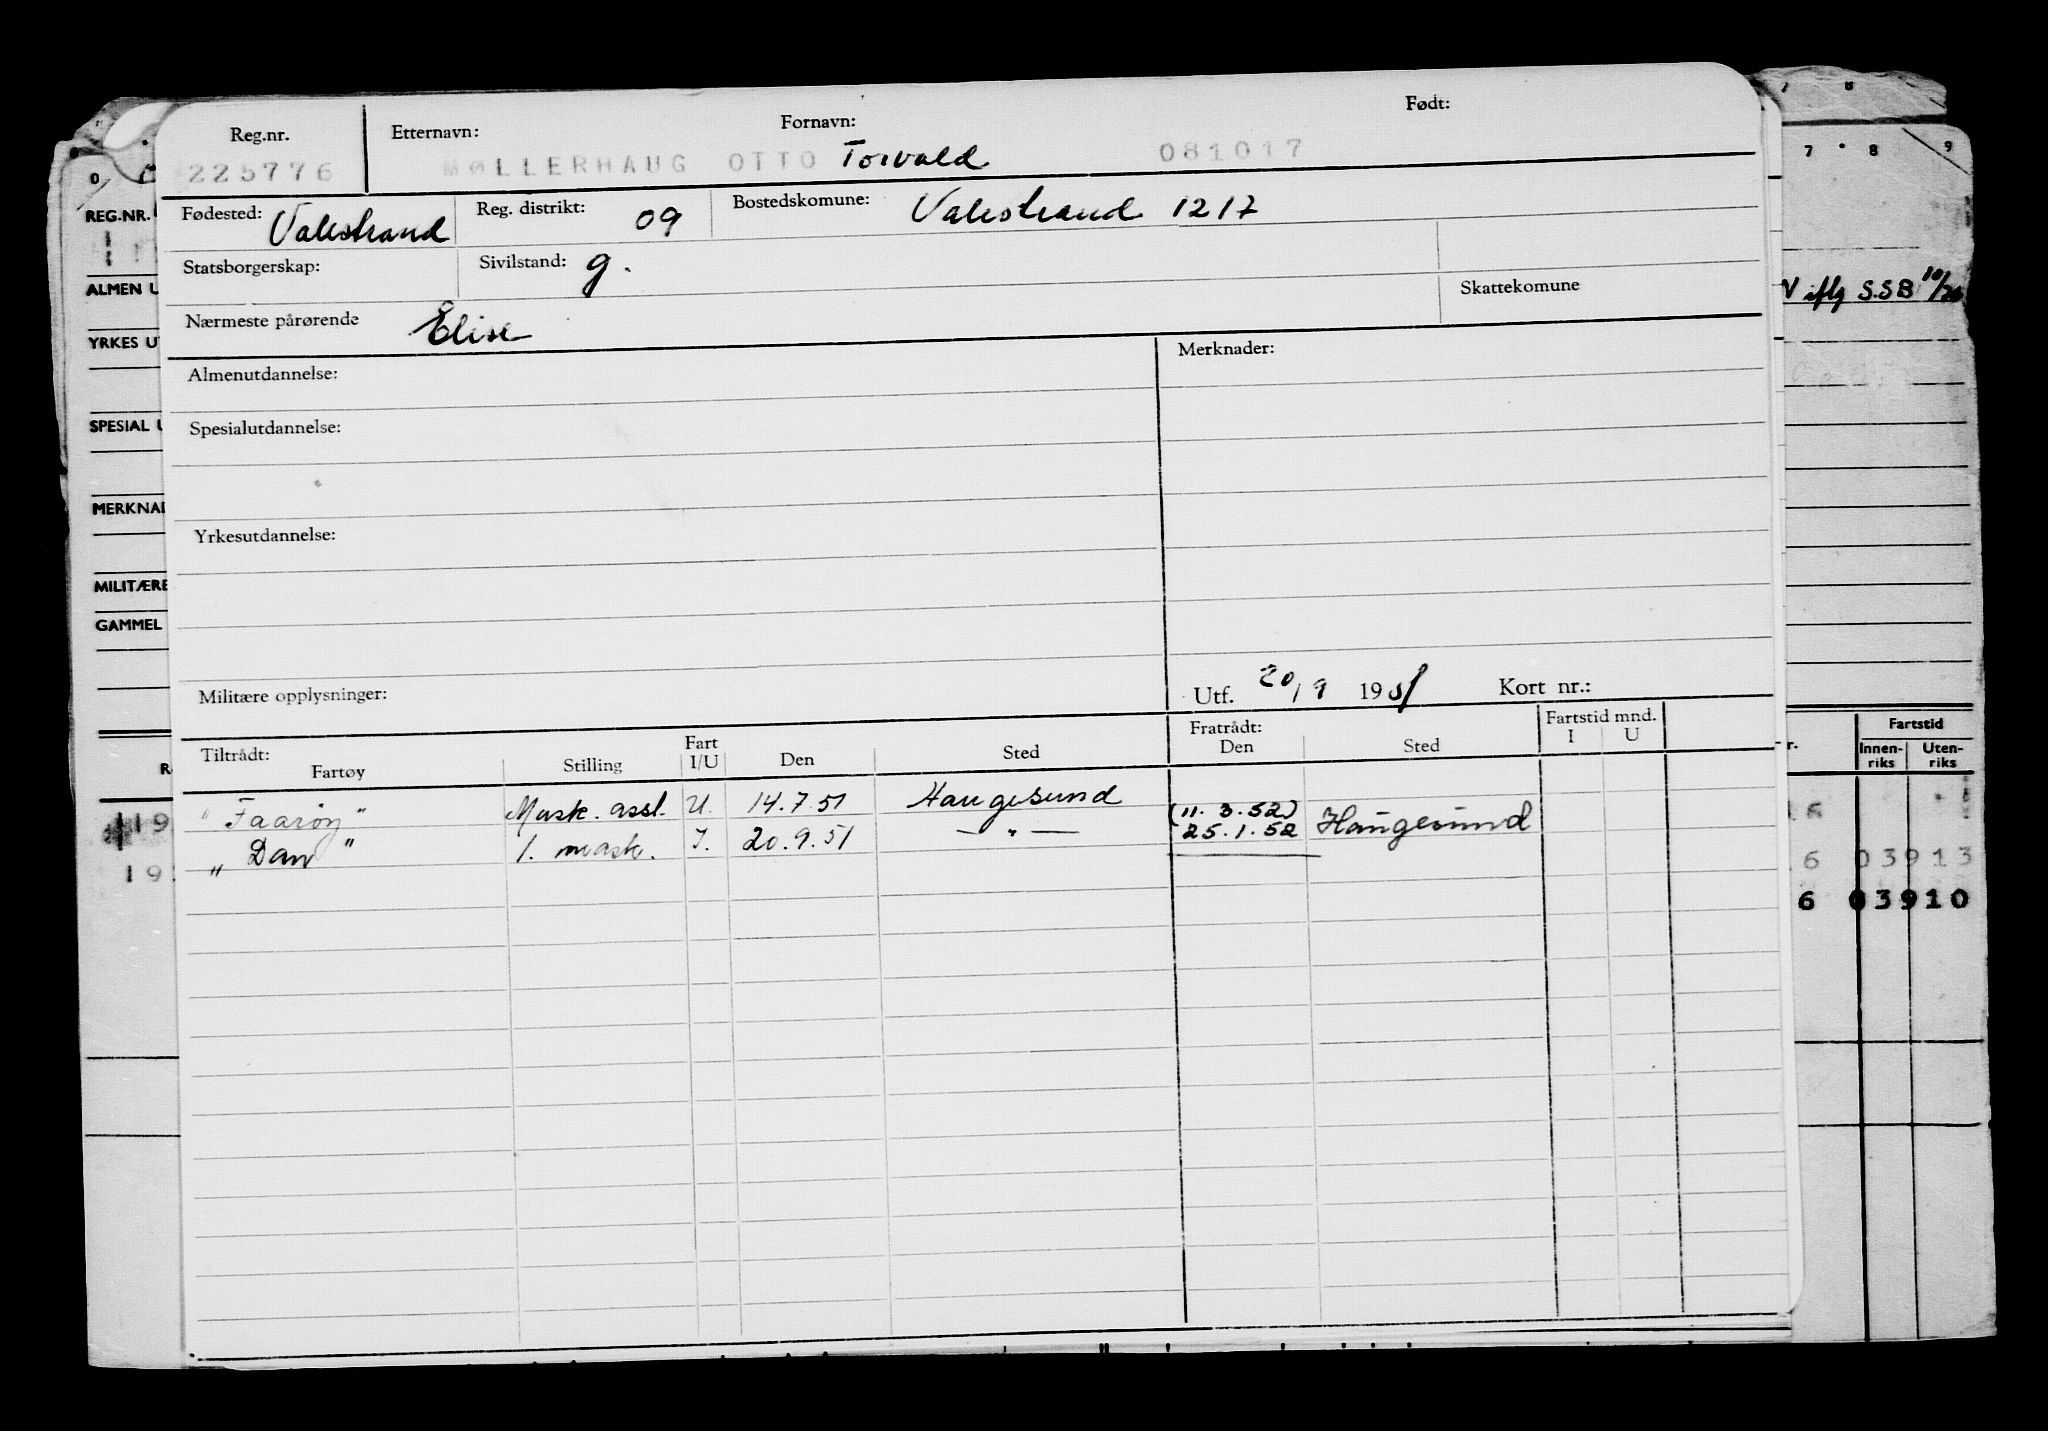 Reg.nr. Etternavn: Fornavn: Født:
225776 MØLLERHAUG OTTO Torvald 081017
Fødested: Valestrand Reg. distrikt: 09 Bostedskomune: Valestrand 1217
Statsborgerskap: Sivilstand: g. Skattekomune
Nærmeste pårørende Elise
Almenutdannelse: Merknader:
Spesialutdannelse:
Yrkesutdannelse:
Militære opplysninger: Utf. 20/9 1951 Kort nr.:
Tiltrådt: Fratrådt: Fartstid mnd.
Fartøy Stilling Fart I/U Den Sted Den Sted I U
"Faarøy" Mask. asst. U. 14.7.51 Haugesund (11.3.52)
"Dan" 1. mask. I. 20.9.51 — " — 25.1.52 Haugesund
0
REG.NR.
ALMEN U
YRKES U
SPESIAL U
MERKNAD
MILITÆRE
GAMMEL
19
19
7 8
7 8 9
iflg S.S.B
Fartstid
r. Innen-riks Uten-riks
6 03913
6 03910